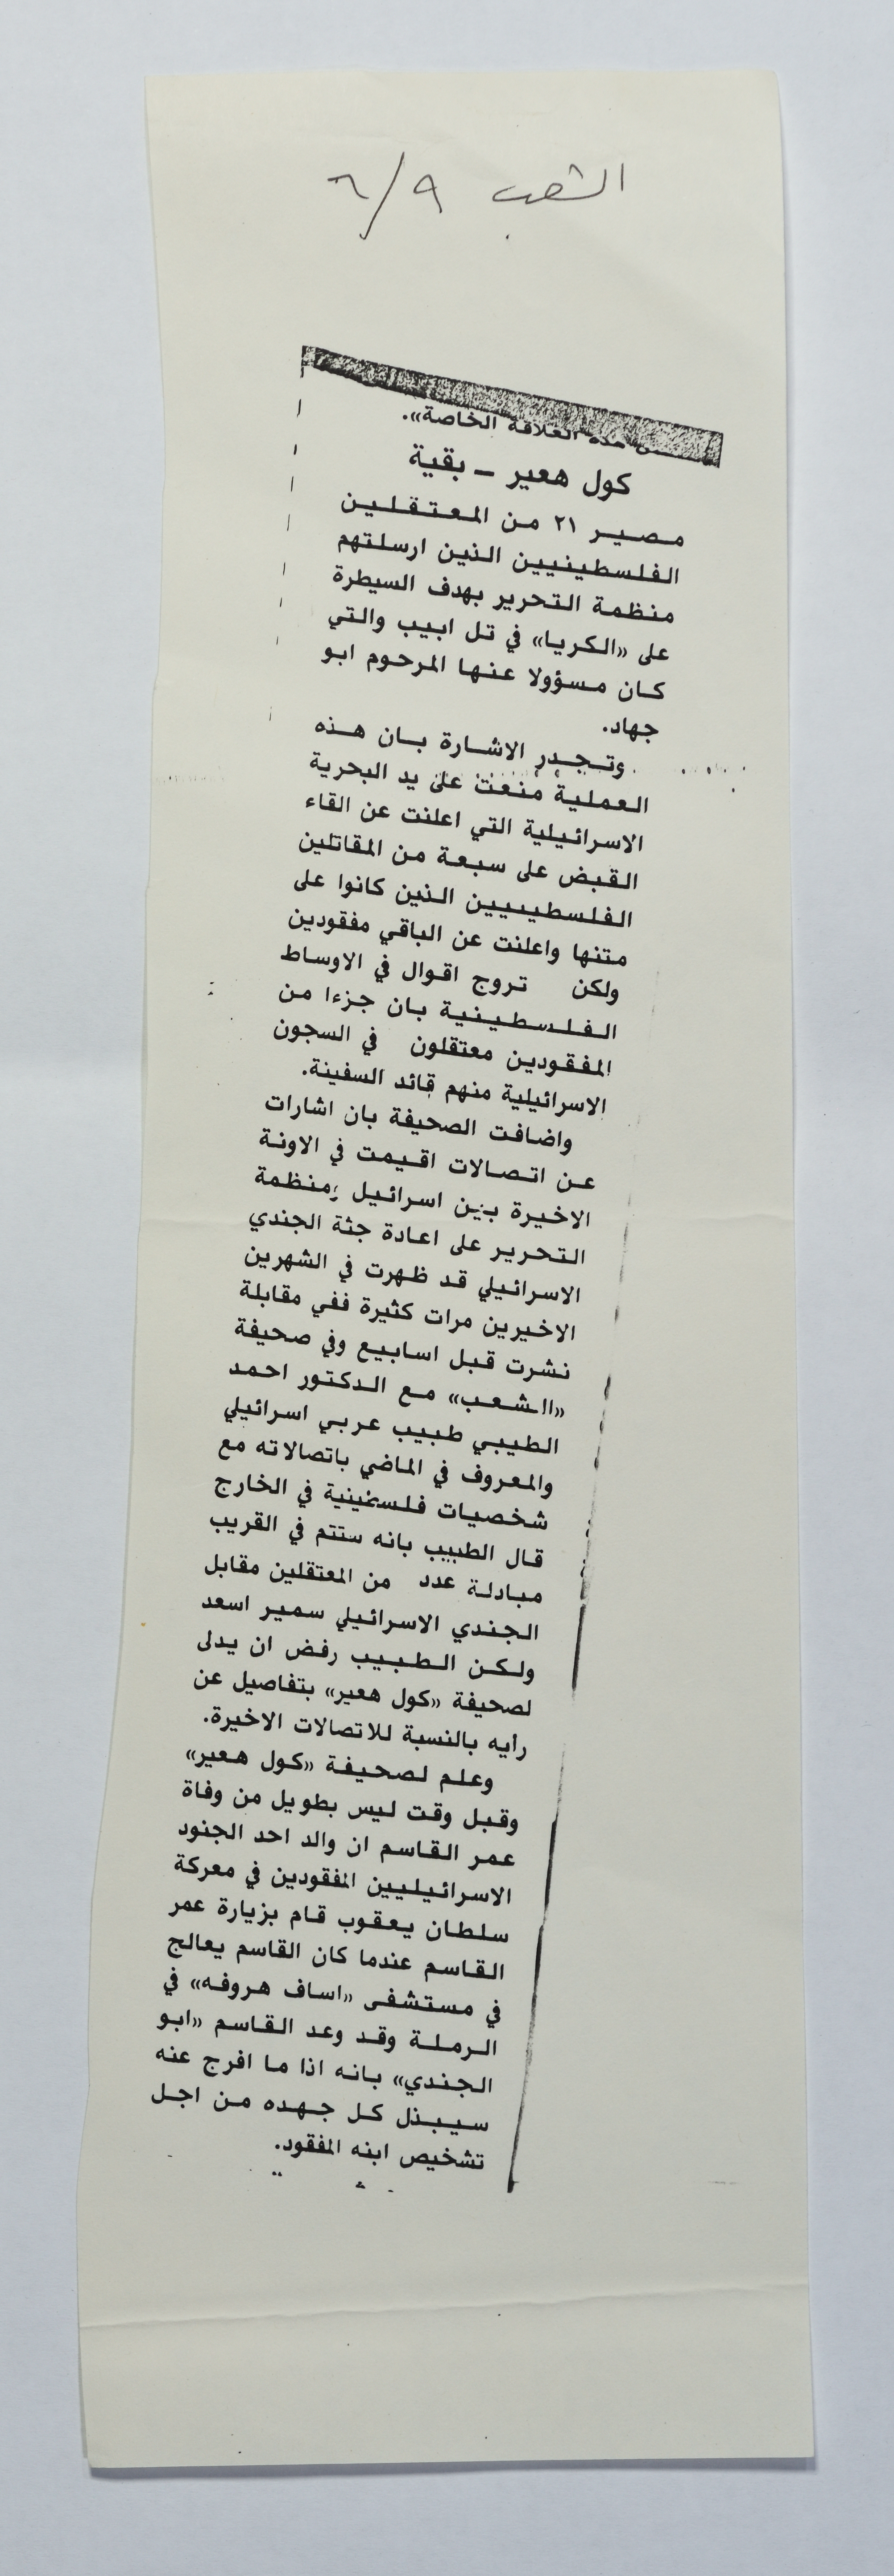 الشعب ٩/٦
هذه العلاقة الخاصة».
كول هعير ــ بقية
مصير ٢١ من المعتقلين
الفلسطينيين الذين ارسلتهم
منظمة التحرير بهدف السيطرة
على «الكريا» في تل ابيب والتي
كان مسؤولا عنها المرحوم ابو
جهاد.
وتجدر الاشارة بان هذه
العملية منعت على يد البحرية
الاسرائيلية التي اعلنت عن القاء
القبض على سبعة من المقاتلين
الفلسطييين الذين كانوا على
متنها واعلنت عن الباقي مفقودين
ولكن تروج اقوال في الاوساط
الفلسطينية بان جزءا من
المفقودين معتقلون في السجون
الاسرائيلية منهم قائد السفينة.
واضافت الصحيفة بان اشارات
عن اتصالات اقيمت في الاونة
الاخيرة بين اسرائيل ومنظمة
التحرير على اعادة جثة الجندي
الاسرائيلي قد ظهرت في الشهرين
الاخيرين مرات كثيرة ففي مقابلة
نشرت قبل اسابيع وفي صحيفة
«الشعب» مع الدكتور احمد
الطيبي طبيب عربي اسرائيلي
والمعروف في الماضي باتصالاته مع
شخصيات فلسطينية في الخارج
قال الطبيب بانه ستتم في القريب
مبادلة عدد من المعتقلين مقابل
الجندي الاسرائيلي سمير اسعد
ولكن الطبيب رفض ان يدلى
لصحيفة «كول هعير» بتفاصيل عن
رأيه بالنسبة للاتصالات الاخيرة.
وعلم لصحيفة «كول هعير»
وقبل وقت ليس بطويل من وفاة
عمر القاسم ان والد احد الجنود
الاسرائيليين المفقودين في معركة
سلطان يعقوب قام بزيارة عمر
القاسم عندما كان القاسم يعالج
في مستشفى «اساف هروفه» في
الرملة وقد وعد القاسم «ابو
الجندي» بانه اذا ما افرج عنه
سيبذل كل جهده من اجل
تشخيص ابنه المفقود.